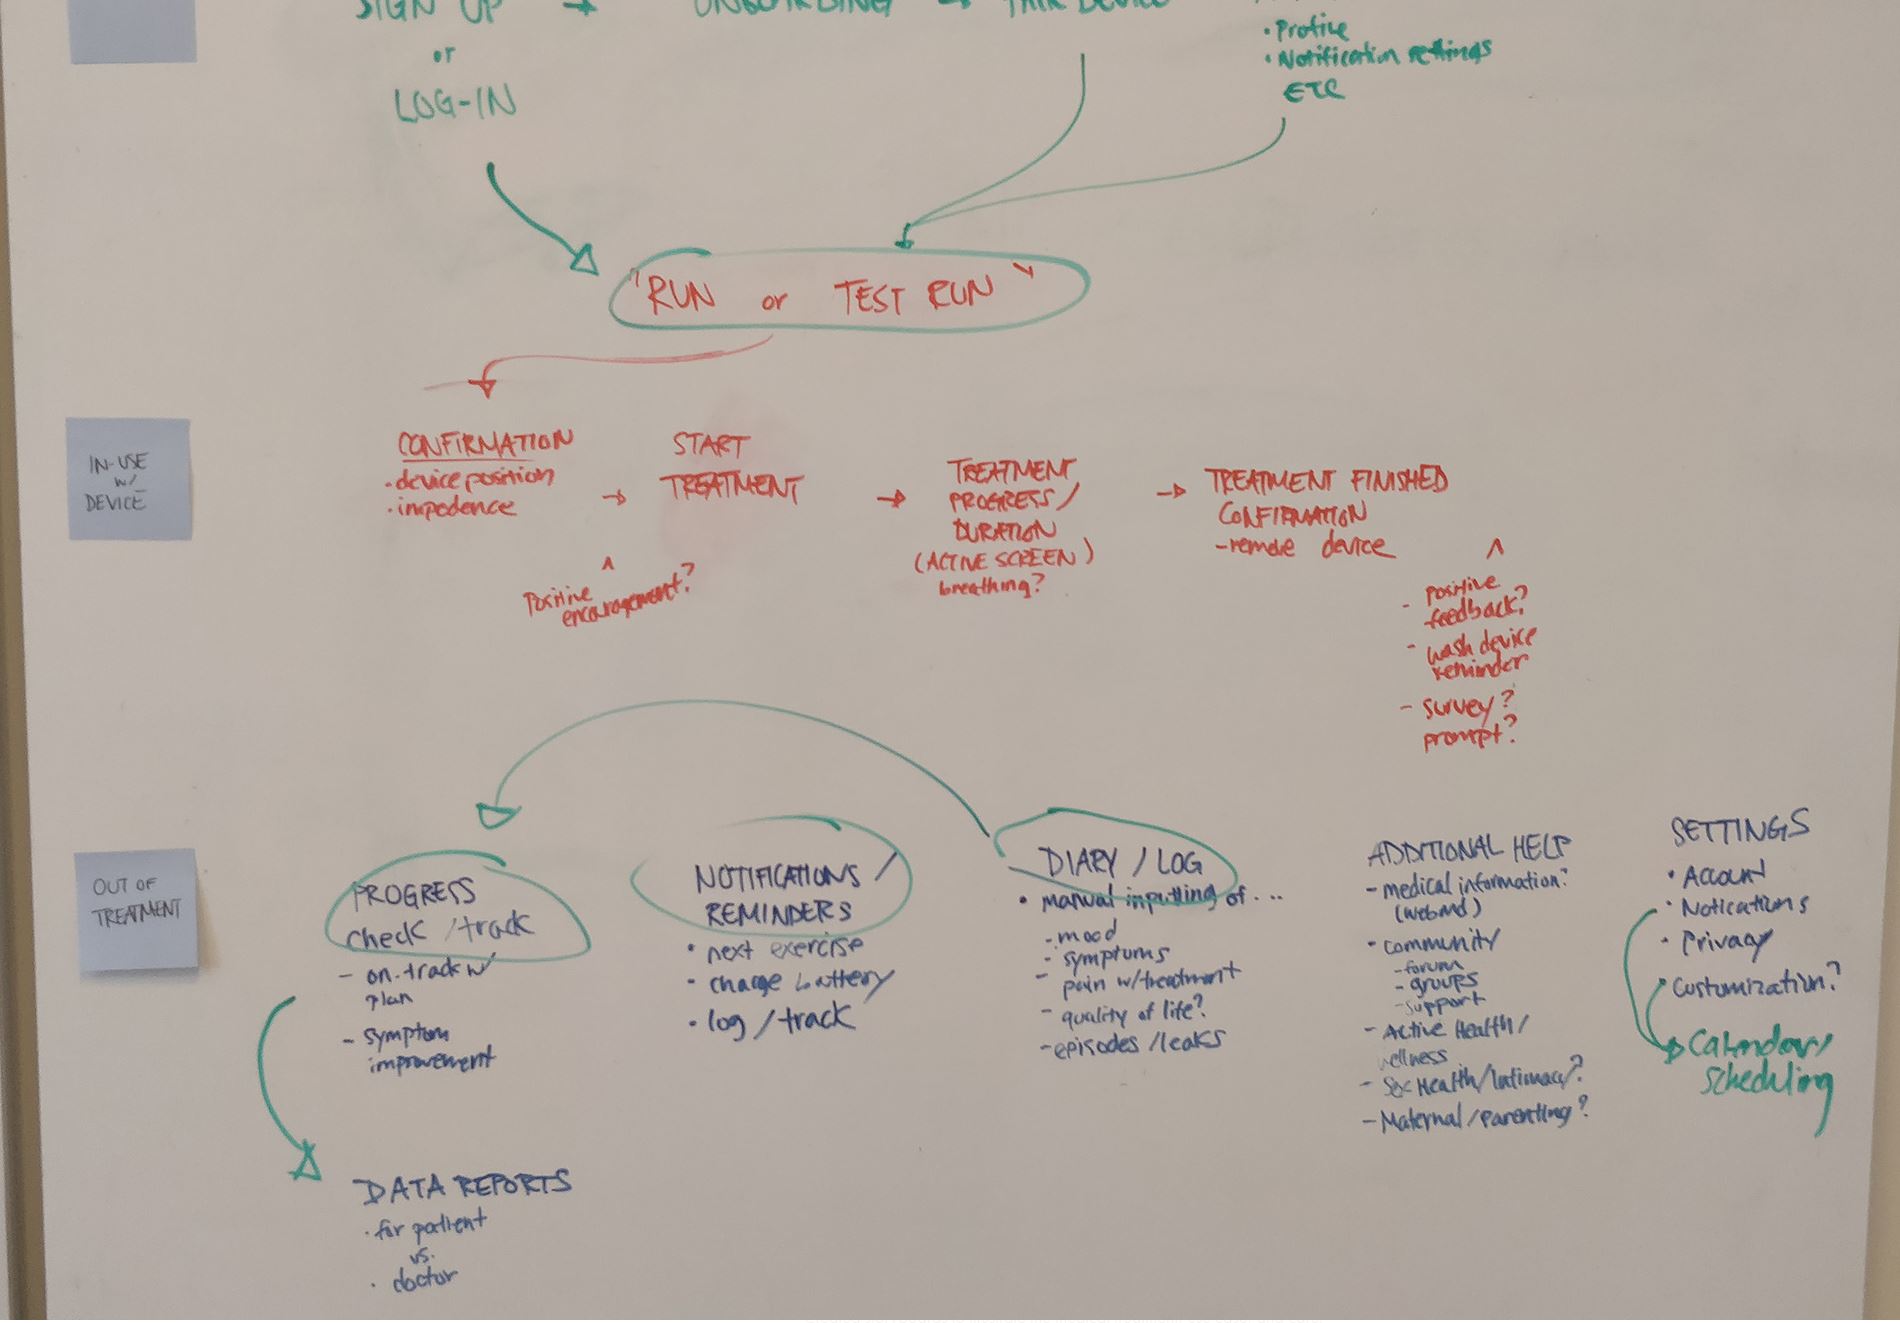 SIGN UP → ONBOARDING → PAIR DEVICE
or
LOG-IN
• Profile
• Notification settings
ETC
"RUN or TEST RUN"
IN-USE
w/
DEVICE
CONFIRMATION
• device position
• impedence
→
Positive
encouragement?
START
TREATMENT
→
TREATMENT
PROGRESS /
DURATION
(ACTIVE SCREEN)
breathing?
→
TREATMENT FINISHED
CONFIRMATION
- remove device
- positive
feedback?
- wash device
reminder
- survey?
prompt?
OUT OF
TREATMENT
PROGRESS
check / track
- on-track w/
plan
- symptom
improvement
DATA REPORTS
• for patient
vs.
• doctor
NOTIFICATIONS /
REMINDERS
• next exercise
• charge battery
• log / track
DIARY / LOG
• manual inputting of ...
- mood
- symptoms
- pain w/treatment
- quality of life?
- episodes / leaks
ADDITIONAL HELP
- medical information?
(webmd)
• community
- forum
- groups
- support
- Active Health /
wellness
- Sex Health / Intimacy?
- Maternal / parenting?
SETTINGS
• Account
• Notications
• Privacy
• Customization?
Calendar /
scheduling